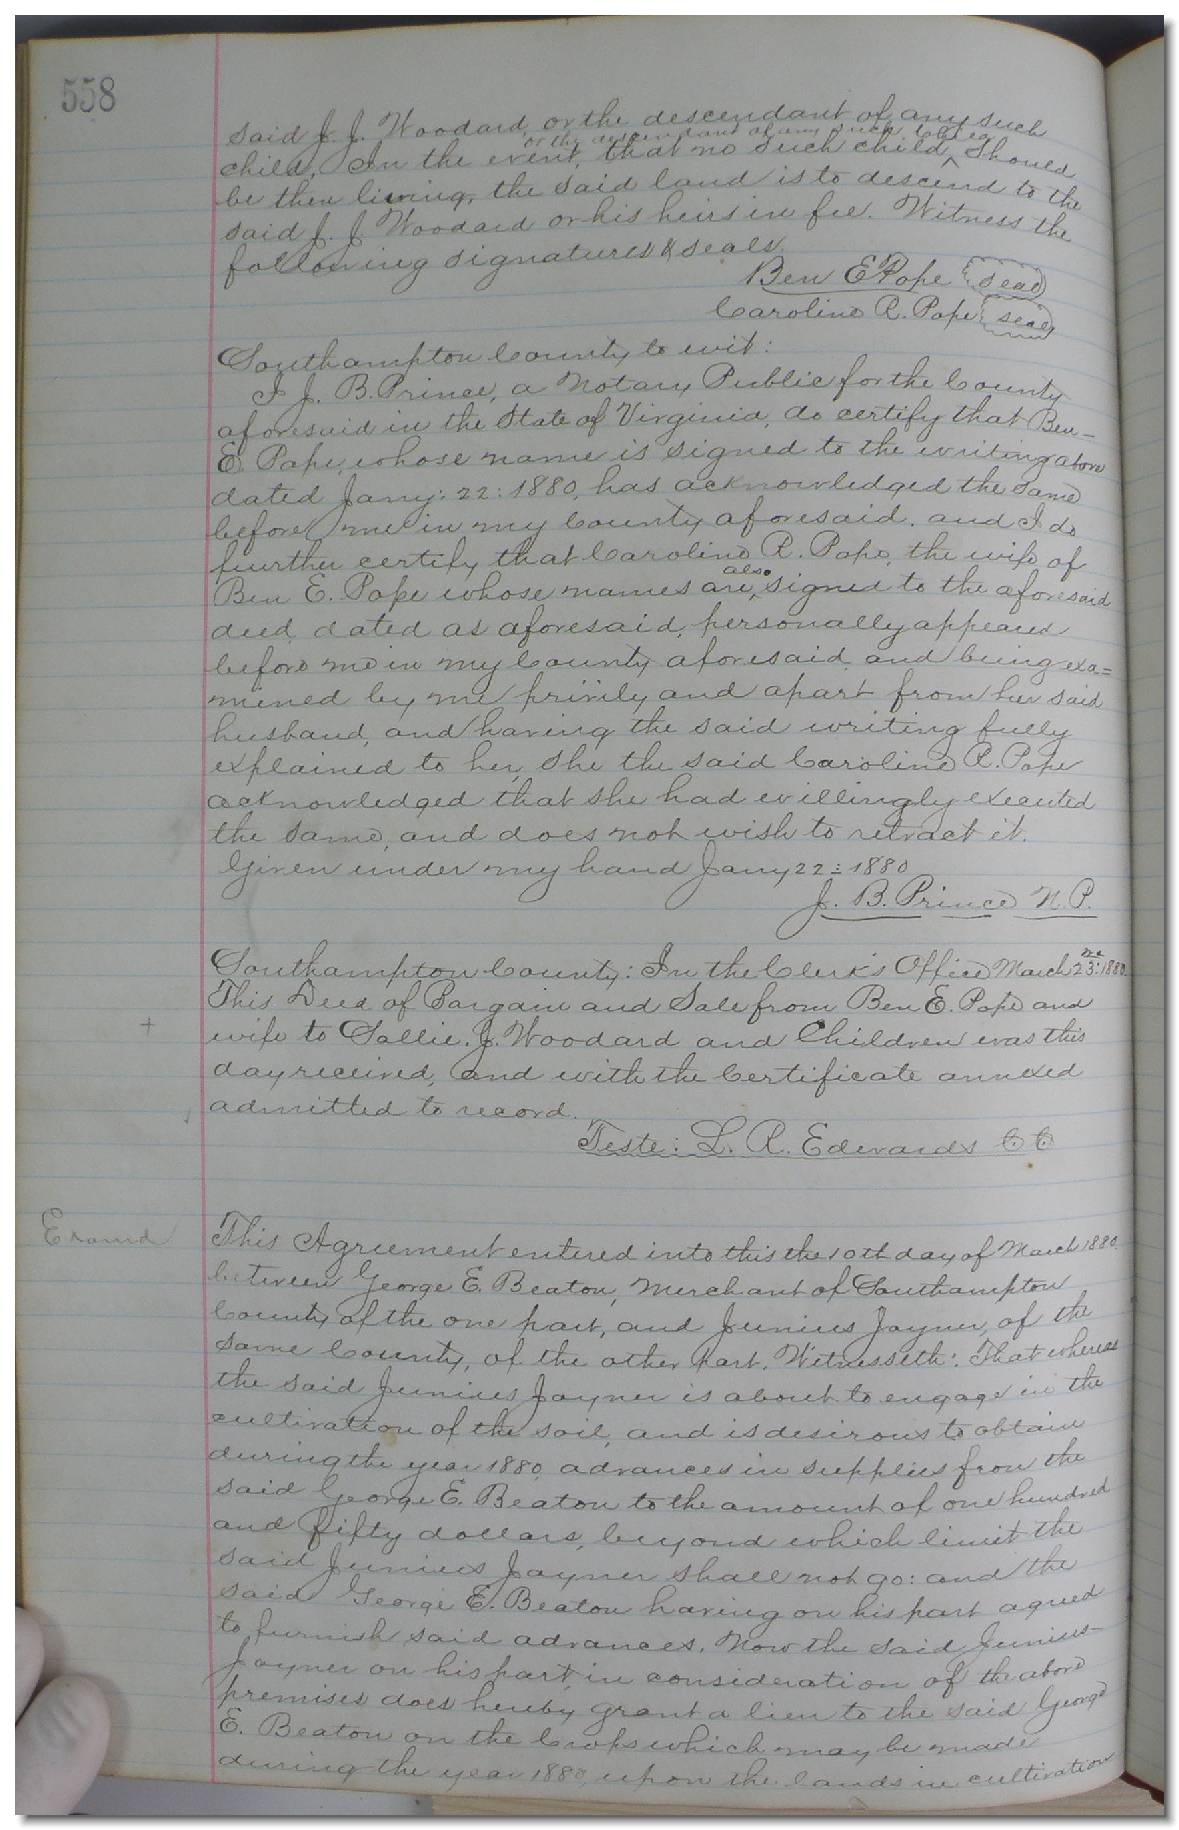 558
said J. J. Woodard, or the descendant of any such
or the descendant of any such child
child, In the event, that no such child ^ should
be then living, the said land is to descend to the
said J. J. Woodard or his heirs in fee. Witness the
following signatures & seals.
Ben E Pope seal
Caroline R. Pope seal
Southampton County to wit:
I J. B. Prince, a Notary Public for the County
aforesaid in the State of Virginia, do certify that Ben-
E. Pope, whose name is signed to the writing above
dated Jany: 22: 1880, has acknowledged the same
before me in my County aforesaid. and I do
further certify that Caroline R. Pope, the wife of
also
Ben E. Pope whose names are ^ signed to the aforesaid
deed, dated as aforesaid, personally appeared
before me in my County aforesaid, and being exa=
mined by me privily and apart from her said
husband, and having the said writing fully
explained to her, she the said Caroline R. Pope
acknowledged that she had willingly executed
the same, and does not wish to retract it.
Given under my hand Jany 22: 1880
J. B. Prince N. P.
Southampton County: In the Clerk's Office March 23: 1880.
This Deed of Bargain and Sale from Ben E. Pope and
+ wife to Sallie. J. Woodard and Children was this
day received, and with the Certificate annexed
admitted to record.
Teste: L. R. Edwards C C
Examd
This Agreement entered into this the 10th day of March 1880.
between George E. Beaton, Merchant of Southampton
County of the one part, and Junius Joyner, of the
same County, of the other part. Witnesseth: That whereas
the said Junius Joyner is about to engage in the
cultivation of the soil, and is desirous to obtain
during the year 1880, advances in supplies from the
said George E. Beaton to the amount of one hundred
and fifty dollars, beyond which limit the
said Junius Joyner shall not go: and the
said George E. Beaton having on his part agreed
to furnish said advances. Now the said Junius-
Joyner on his part, in consideration of the above
premises does hereby grant a lien to the said George
E. Beaton on the Crops which may be made
during the year 1880, upon the lands in cultivation